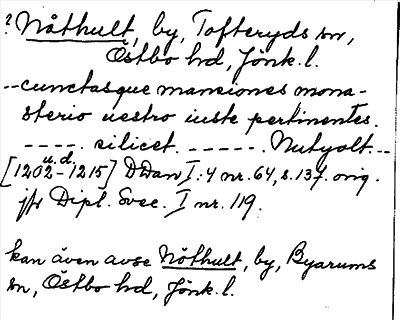 ? Nåthult, by, Tofteryds sn,
Östbo hd, Jönk. l.
-- cunctasque mansiones mona-
sterio uestro iuste pertinentes.
----. silicet. -----. Nutyolt.--
u.d.
[1202-1215] DDan I:4 nr. 64, s. 137. orig.
jfr Dipl. Svec. I nr. 119.
kan även avse Nöthult, by, Byarums
sn, Östbo hd, Jönk. l.